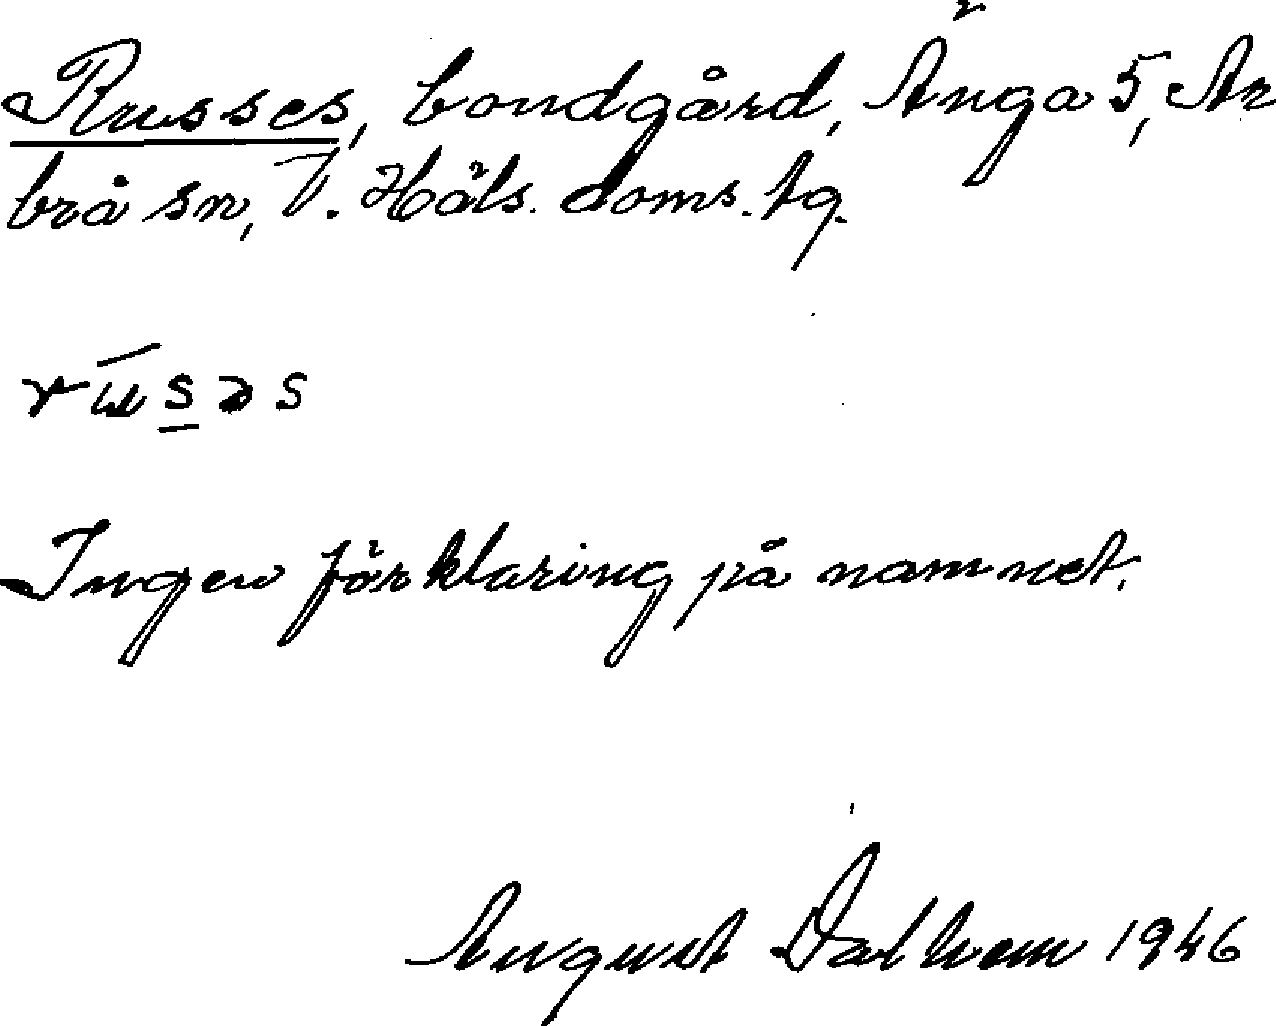 Russes, bondgård, Änga 5, Ar
brå sn, V. Häls. doms. tg.
rūsəs
Ingen förklaring på namnet.
August Dalhem 1946